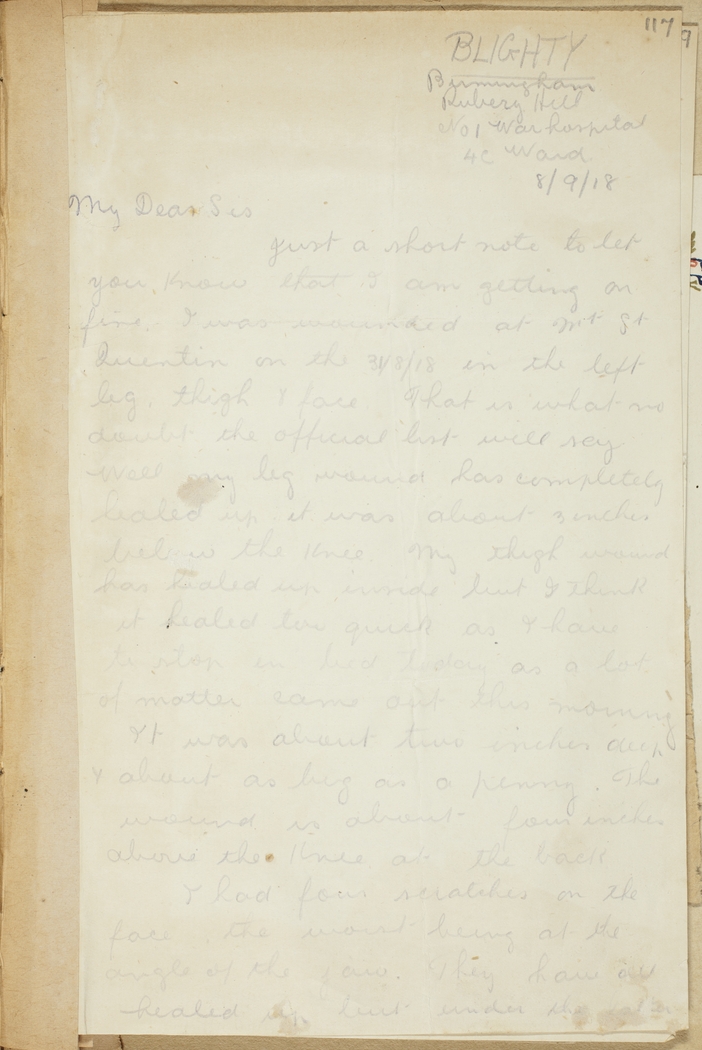 117
9
BLIGHTY
Birmingham
Rubery Hill
No 1 War hospital
4C Ward.
8/9/18
My Dear Sis
Just a short note to let
you know that I am getting on
fine. I was wounded at Mt St
Quentin on the 31/8/18 in the left
leg, thigh & face. That is what no
doubt the official list will say
Well my leg wound has completely
healed up it was about 3 inches
below the Knee. My thigh wound
has healed up inside but I think
it healed too quick as I have
to stop in bed today as a lot
of matter came out this morning
It was about two inches deep
& about as big as a penny. The
wound is about four inches
above the Knee at the back
I had four scratches on the
face, the worst being at the
angle of the jaw. They have all
healed up but under the